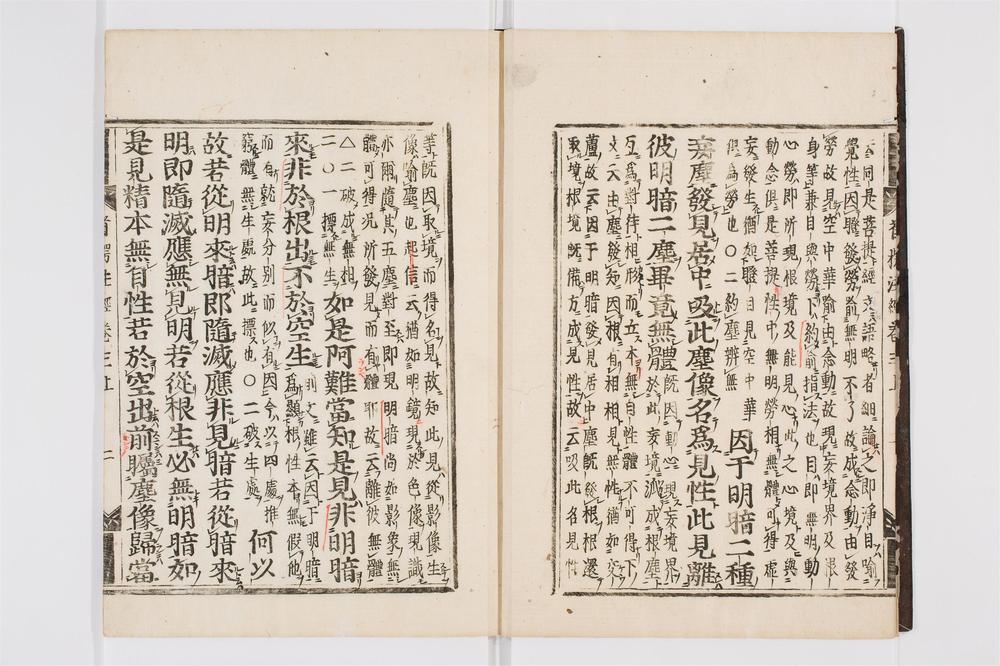 云同是菩提經文語略者細論之即淨目喻
覺性因瞪發勞喻無明不了故成念動由發
勞故見空中華喻由念動故現妄境界及根
身等兼目與勞下約喻指法也目即無明動
心勞即所現根境及能見心此之心境及與
動念俱是菩提性中無明勞相無體可得虛
妄發生猶如瞪目見空中華
似為勞也〇二約塵辨無
因于明暗二種
妄塵發見居中吸此塵像名為見性此見離
彼明暗二塵畢竟無體
既因動心現妄境界
於此妄境還成根塵
互為對待相形而立本無自性體不可得下
文云由塵發知因根有相相見無性猶如交
蘆故云因于明暗發見居中塵既發根根還
取境根境既備方成見性故云吸此名見性
等既因取境而得名見故知此見從影像生
像喻塵也起信云猶如明鏡現於色像現識
亦爾隨其五塵對至即現明暗尚如影象無
體可得況所發見而有體耶故云離彼無體
△二破成無相
二〇一標無生
如是阿難當知是見非明暗
來非於根出不於空生
則文雖云因于明暗
為顯根性本無假他
而有就妄分別而似有因今以四處推
窮體無生處故此標也〇二破生處
何以
故若從明來暗即隨滅應非見暗若從暗來
明即隨滅應無見明若從根生必無明暗如
是見精本無自性若於空出前矚塵像歸當